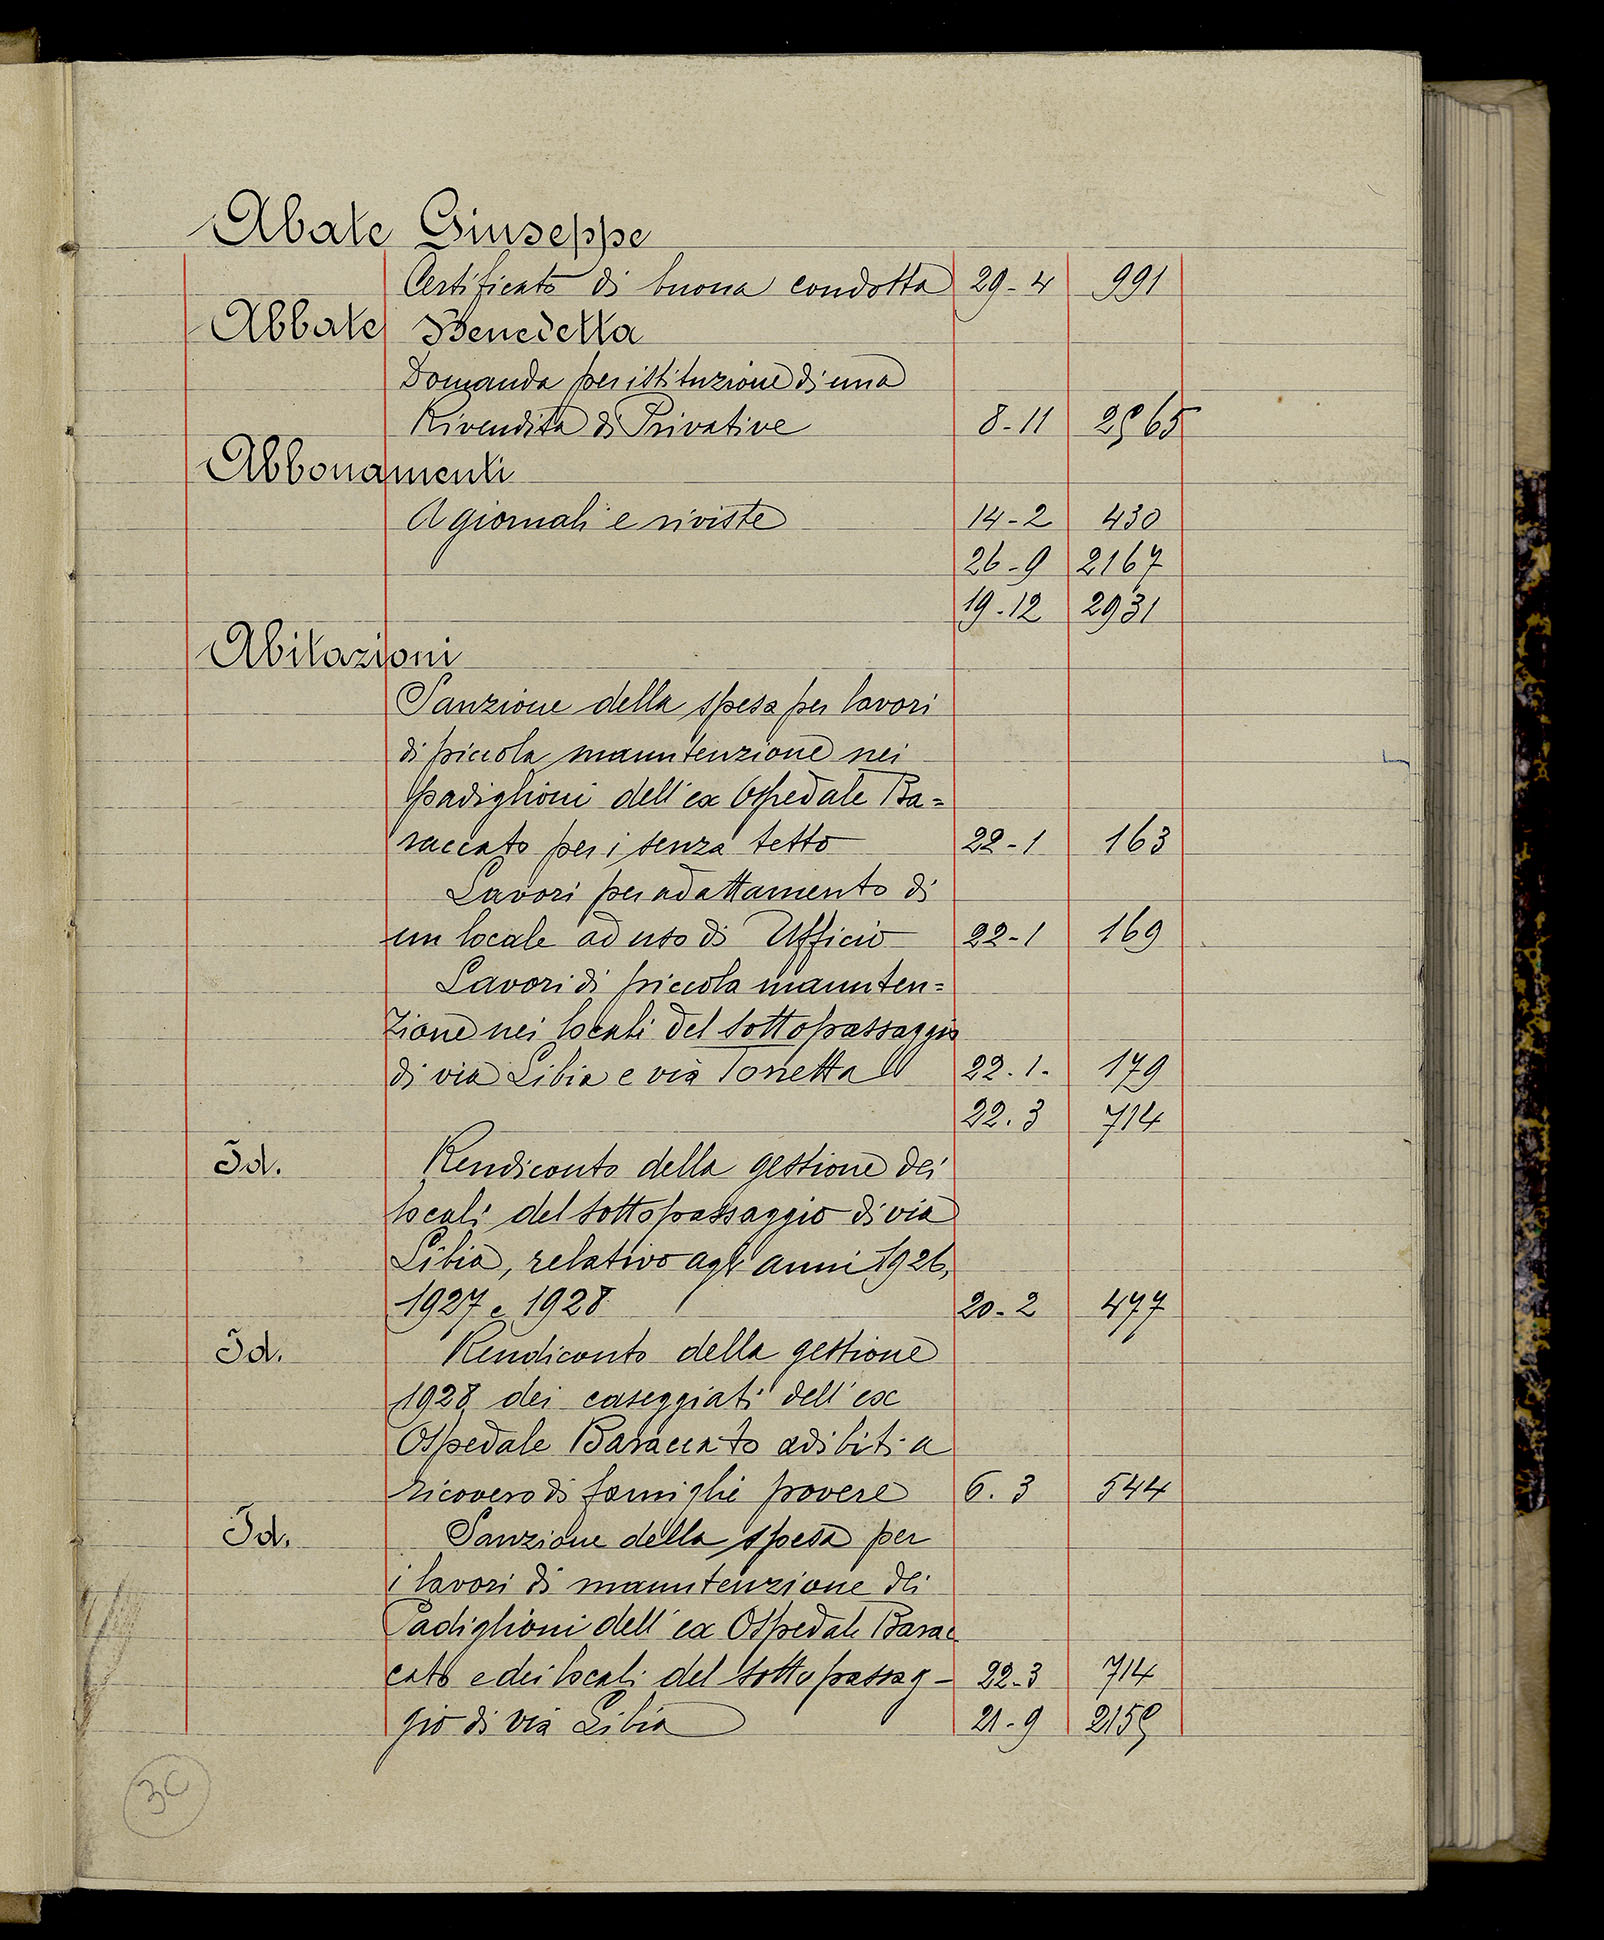 Abate Giuseppe
Certificato di buona condotta 29-4 991
Abbate Benedetta
Domanda per istituzione di una
Rivendita di Privative 8-11 2565
Abbonamenti
A giornali e riviste 14-2 430
26-9 2167
19-12 2931
Abitazioni
Sanzione della spesa per lavori
di piccola manutenzione nei
padiglioni dell'ex Ospedale Ba=
raccato per i senza tetto 22-1 163
Lavori per adattamento di
un locale ad uso di Ufficio 22-1 169
Lavori di piccola manuten=
zione nei locali del sottopassaggio
di via Libia e via Tonetta 22.1. 179
22.3 714
Id. Rendiconto della gestione dei
locali del sottopassaggio di via
Libia, relativo agli anni 1926,
1927 e 1928 20-2 477
Id. Rendiconto della gestione
1928 dei caseggiati dell'ex
Ospedale Baraccato adibiti a
ricovero di famiglie povere 6.3 544
Id. Sanzione della spesa per
i lavori di manutenzione dei
Padiglioni dell'ex Ospedale Barac
cato e dei locali del sottopassag- 22-3 714
gio di via Libia 21-9 2159